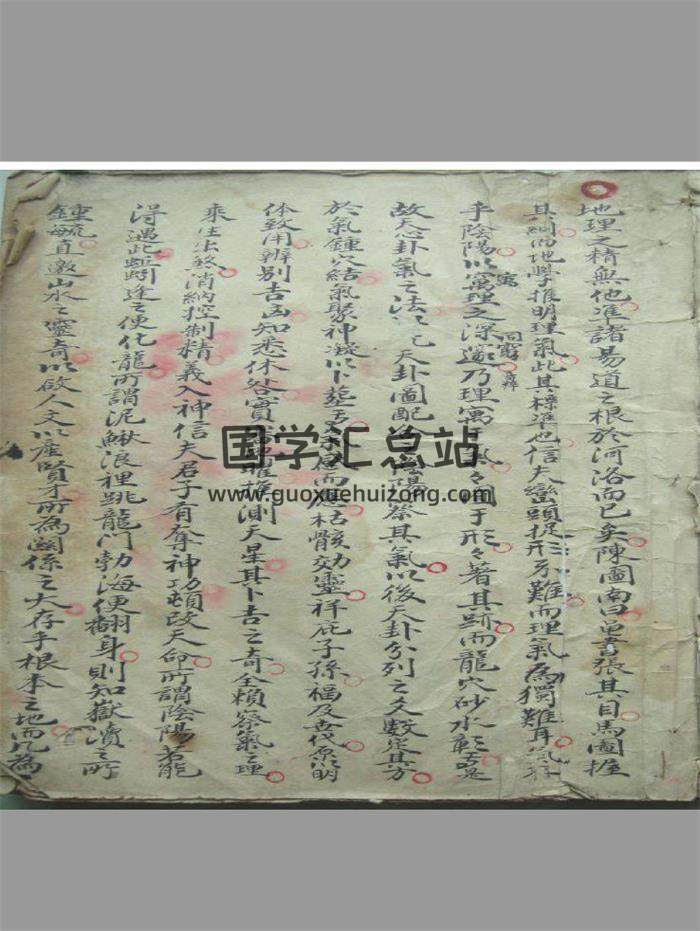 地理之精無他准諸易道之根於河洛而已矣陳圖南曰龜書張其目馬圖握
其綱而地學推明理氣此其標準也信夫巒頭捉形не難而理氣為獨難耳氣
乎陰陽以寓理之深邃乃理寓于氣々囿于形々著其跡而龍穴砂水彰
故天心卦氣之法以先天卦圖配合陰陽察其氣以後天卦分列之爻數定其方
於氣鍾穴結氣聚神凝以卜塟而應枯骸効靈祥庇子孫福及無明
体致用辨別吉凶知悉休咎實測天星其卜吉之奇全賴察氣之理
乘生出煞消納控制精義入神信夫君子有奪神功改天命所謂陰陽若能
得遇此蹊途之便化龍所謂泥鰍浪裡跳龍門勃海便翻身則知嶽瀆之所
鍾毓直邀山水之靈奇以啟人文以產賢才所為關係之大存乎根本之地而凡為
国学汇总站
www.guoxuehuizong.com